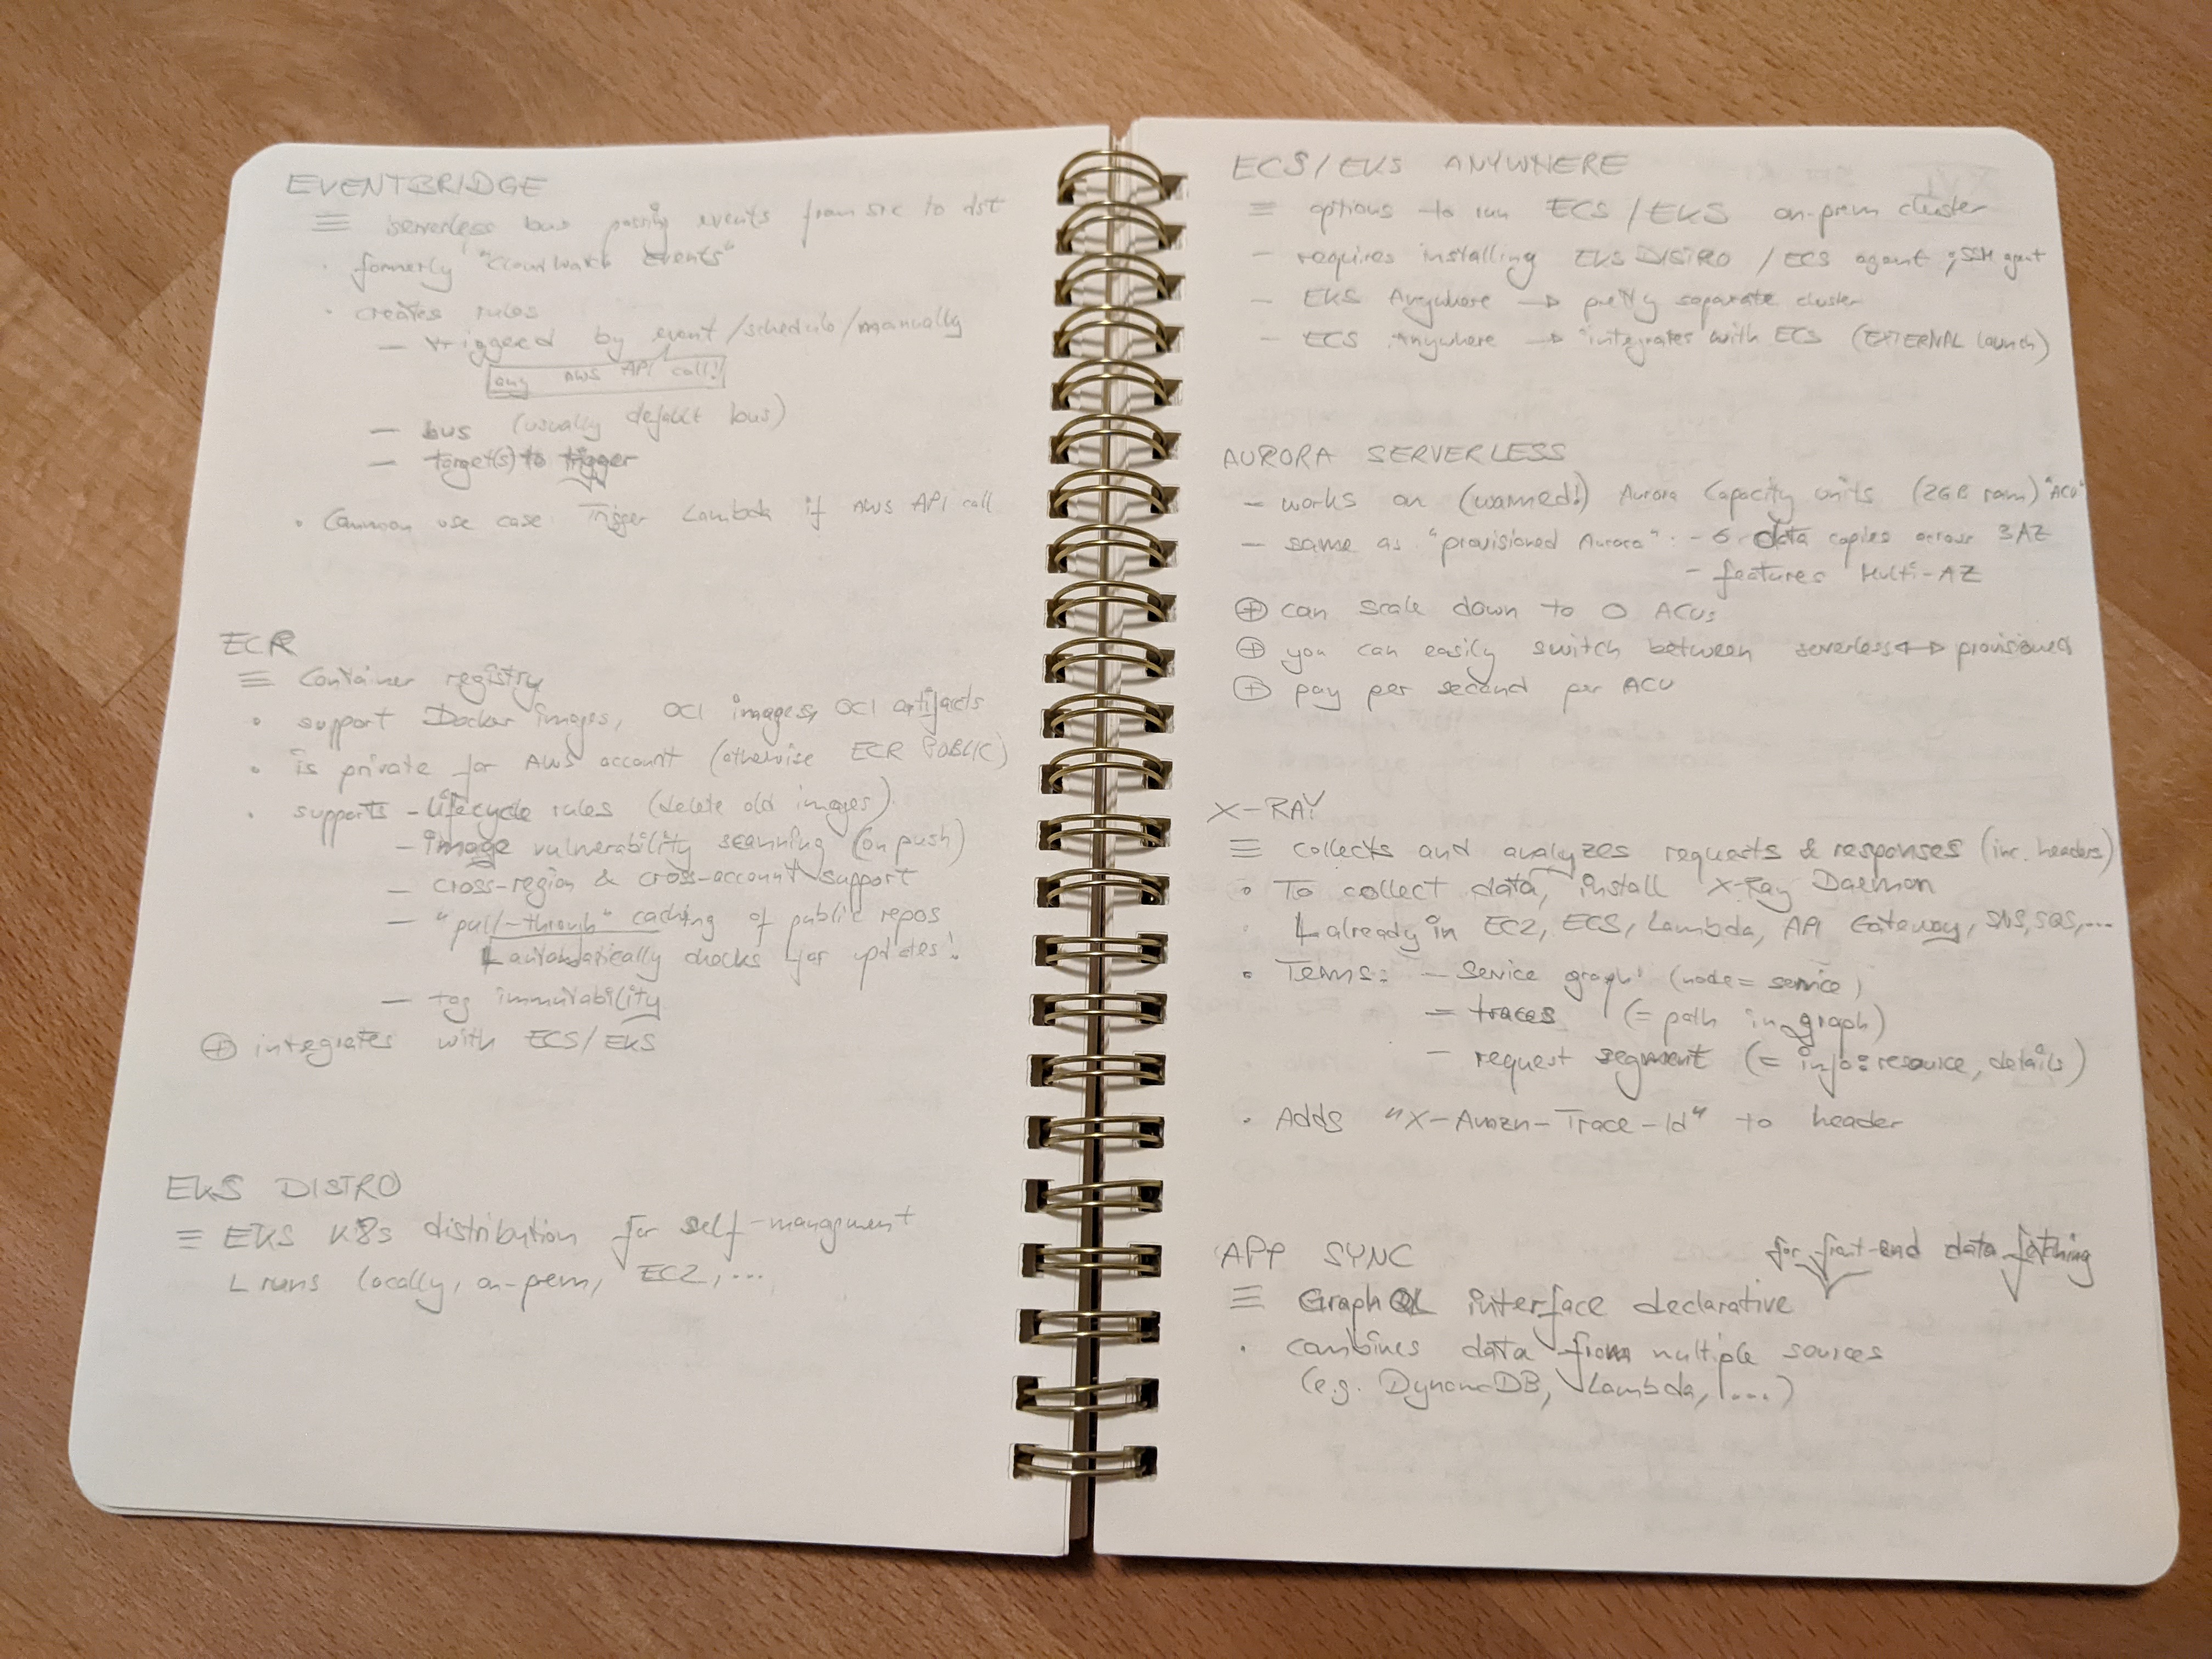 EVENTBRIDGE
≡ serverless bus passing events from src to dst
· formerly "Cloudwatch Events"
· creates rules
— triggered by event/schedule/manually
any AWS API call!
— bus (usually default bus)
— target(s) to trigger
• Common use case: Trigger Lambda if AWS API call
ECR
≡ Container registry
• support Docker images, OCI images, OCI artifacts
• is private for AWS account (otherwise ECR PUBLIC)
• supports - Lifecycle rules (delete old images)
— Image vulnerability scanning (on push)
— cross-region & cross-account support
— "pull-through" caching of public repos
L automatically checks for updates!
— tag immutability
⊕ integrates with ECS/EKS
EKS DISTRO
≡ EKS K8s distribution for self-managment
L runs locally, on-prem, EC2, ...
ECS/EKS ANYWHERE
≡ options to run ECS/EKS on-prem cluster
— requires installing EKS DISTRO / ECS agent ; SSM agent
— EKS Anywhere → pretty separate cluster
— ECS Anywhere → integrates with ECS (EXTERNAL launch)
AURORA SERVERLESS
— works on (warmed!) Aurora Capacity units (2GB ram) "ACU"
— same as "provisioned Aurora": - 6 data copies across 3AZ
- features Multi-AZ
⊕ can scale down to 0 ACUs
⊕ you can easily switch between serverless ↔ provisioned
⊕ pay per second per ACU
X-RAY
≡ collects and analyzes requests & responses (inc. headers)
• To collect data, install X-Ray Daemon
L already in EC2, ECS, Lambda, API Gateway, SNS, SQS, ...
• Terms: — Service graph (node = service)
— traces (= path in graph)
— request segment (= info: resource, details)
• Adds "X-Amzn-Trace-Id" to header
APP SYNC
for front-end data fetching
≡ GraphQL interface declarative
• combines data from multiple sources
(e.g. DynamoDB, Lambda, ...)